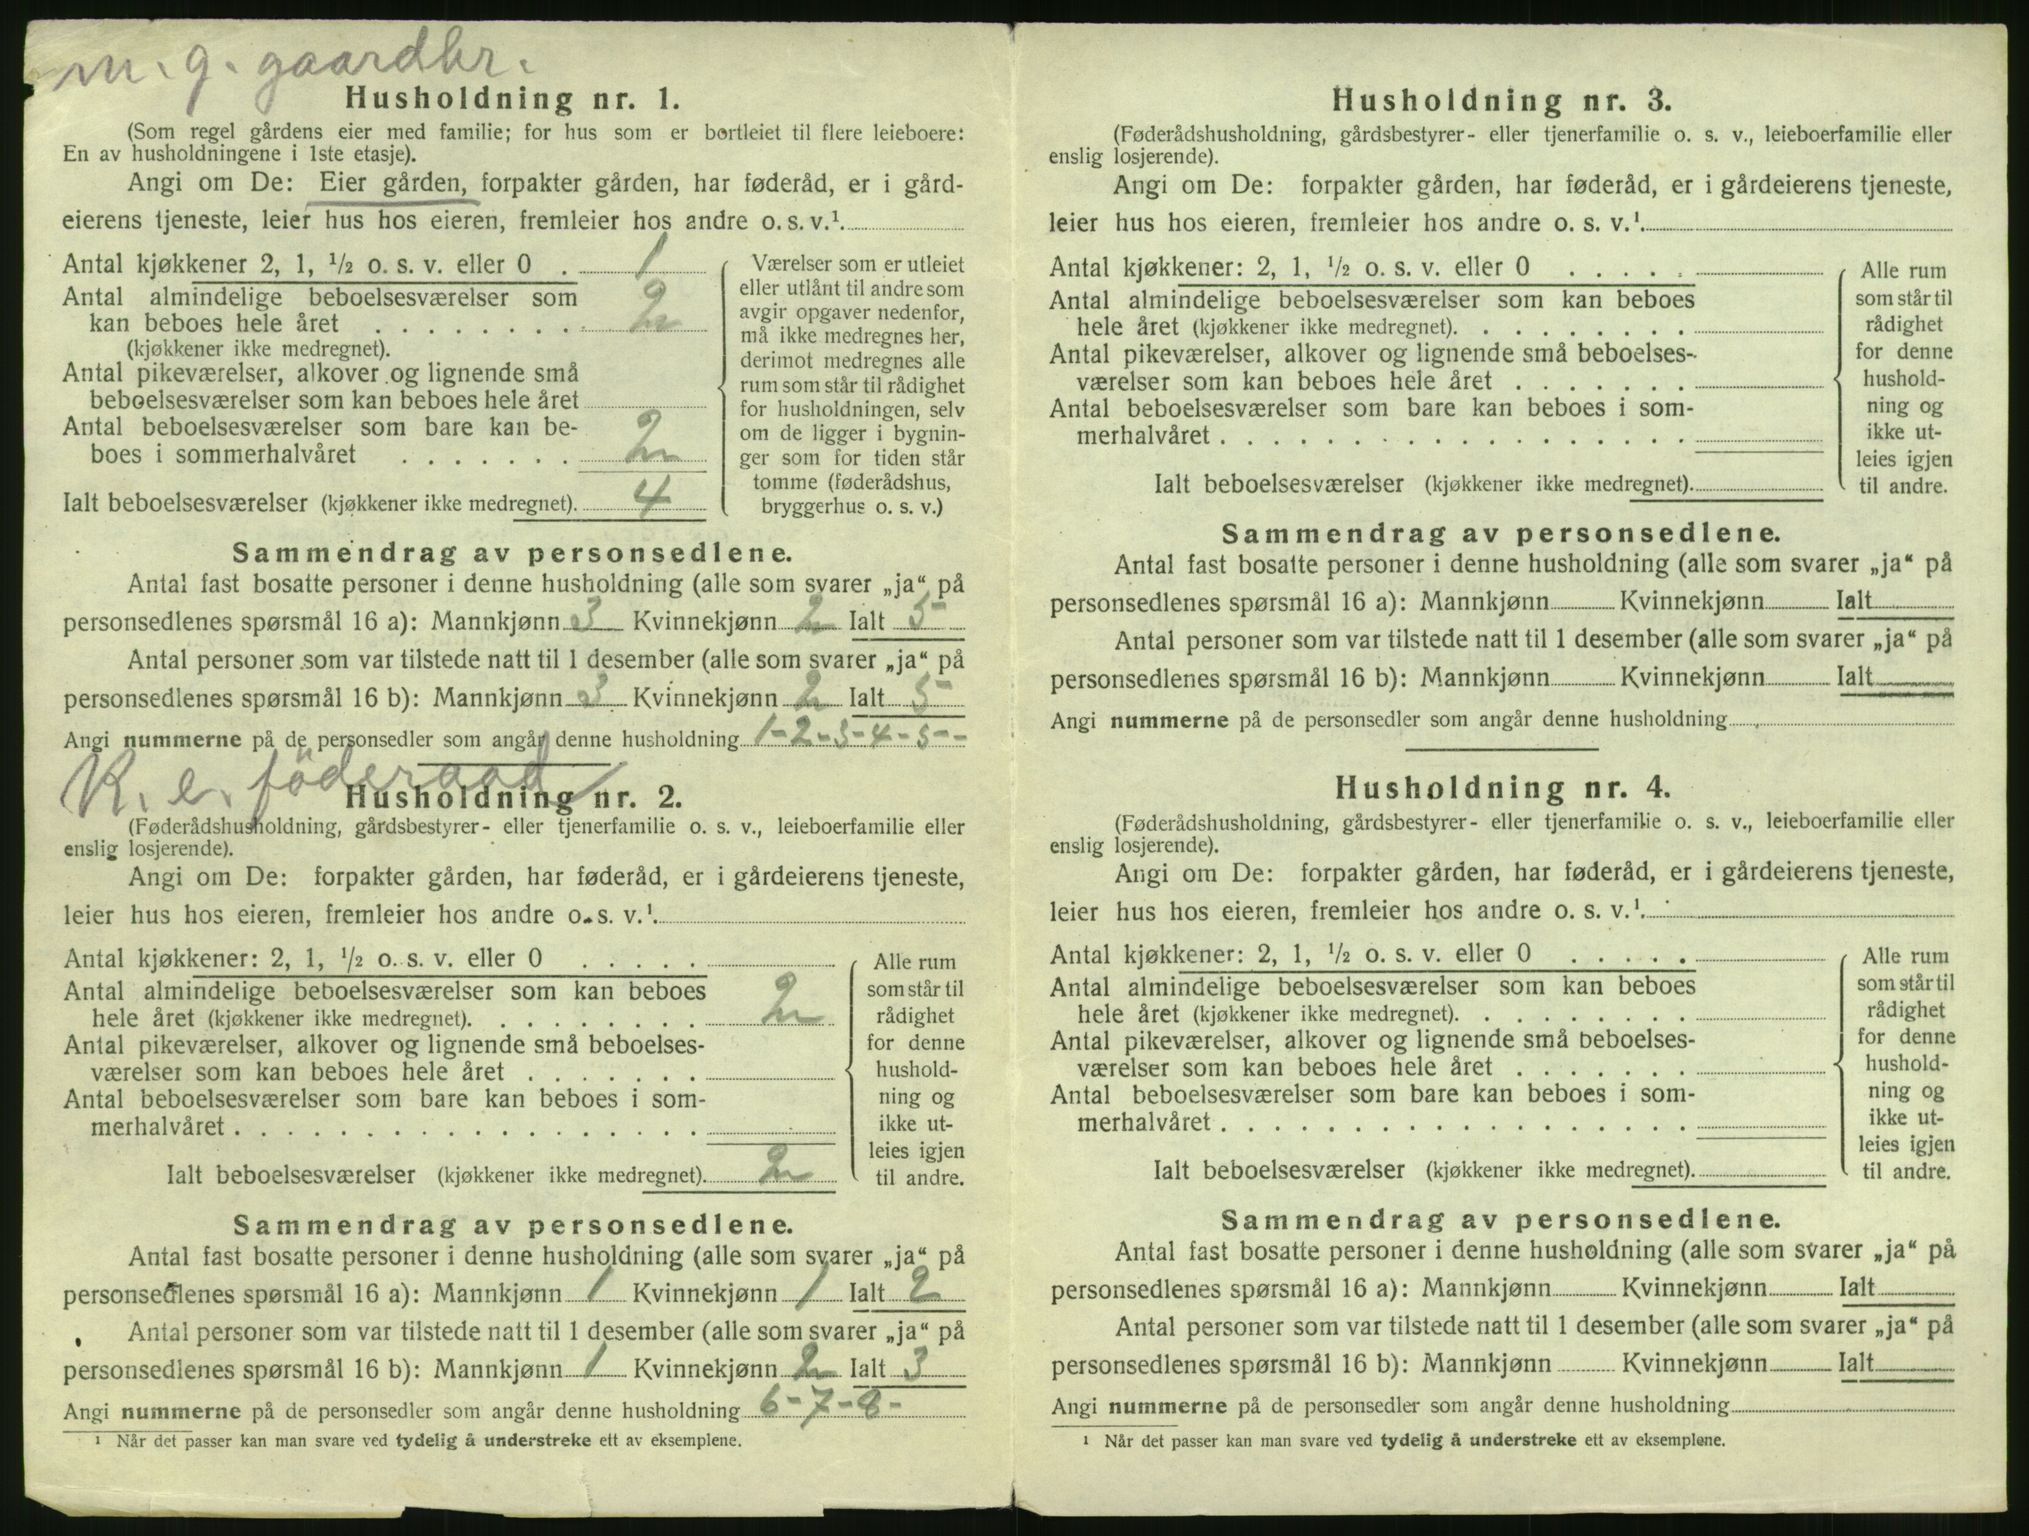 m. g. gaardbr.
Husholdning nr. 1.
(Som regel gårdens eier med familie; for hus som er bortleiet til flere leieboere:
En av husholdningene i 1ste etasje).
Angi om De: Eier gården, forpakter gården, har føderåd, er i gård-
eierens tjeneste, leier hus hos eieren, fremleier hos andre o. s. v.¹
Antal kjøkkener 2, 1, ½ o. s. v. eller 0 . 1
Antal almindelige beboelsesværelser som
kan beboes hele året . . . . . . . . 2
(kjøkkener ikke medregnet).
Antal pikeværelser, alkover og lignende små
beboelsesværelser som kan beboes hele året
Antal beboelsesværelser som bare kan be-
boes i sommerhalvåret . . . . . . . 2
Ialt beboelsesværelser (kjøkkener ikke medregnet). 4
Værelser som er utleiet
eller utlånt til andre som
avgir opgaver nedenfor,
må ikke medregnes her,
derimot medregnes alle
rum som står til rådighet
for husholdningen, selv
om de ligger i bygnin-
ger som for tiden står
tomme (føderådshus,
bryggerhus o. s. v.)
Sammendrag av personsedlene.
Antal fast bosatte personer i denne husholdning (alle som svarer „ja“ på
personsedlenes spørsmål 16 a): Mannkjønn 3 Kvinnekjønn 2 Ialt 5
Antal personer som var tilstede natt til 1 desember (alle som svarer „ja“ på
personsedlenes spørsmål 16 b): Mannkjønn 3 Kvinnekjønn 2 Ialt 5
Angi nummerne på de personsedler som angår denne husholdning 1-2-3-4-5-
K. e. föderaad
Husholdning nr. 2.
(Føderådshusholdning, gårdsbestyrer- eller tjenerfamilie o. s. v., leieboerfamilie eller
enslig losjerende).
Angi om De: forpakter gården, har føderåd, er i gårdeierens tjeneste,
leier hus hos eieren, fremleier hos andre o. s. v.¹.
Antal kjøkkener: 2, 1, ½ o. s. v. eller 0 . . . . .
Antal almindelige beboelsesværelser som kan beboes
hele året (kjøkkener ikke medregnet). . . . . . . . 2
Antal pikeværelser, alkover og lignende små beboelses-
værelser som kan beboes hele året . . . . . . .
Antal beboelsesværelser som bare kan beboes i som-
merhalvåret . . . . . . . . . . . . . . . . . .
Ialt beboelsesværelser (kjøkkener ikke medregnet). 2
Alle rum
som står til
rådighet
for denne
hushold-
ning og
ikke ut-
leies igjen
til andre.
Sammendrag av personsedlene.
Antal fast bosatte personer i denne husholdning (alle som svarer „ja“ på
personsedlenes spørsmål 16 a): Mannkjønn 1 Kvinnekjønn 1 Ialt 2
Antal personer som var tilstede natt til 1 desember (alle som svarer „ja“ på
personsedlenes spørsmål 16 b): Mannkjønn 1 Kvinnekjønn 2 Ialt 3
Angi nummerne på de personsedler som angår denne husholdning 6-7-8-
¹ Når det passer kan man svare ved tydelig å understreke ett av eksemplene.
Husholdning nr. 3.
(Føderådshusholdning, gårdsbestyrer- eller tjenerfamilie o. s. v., leieboerfamilie eller
enslig losjerende).
Angi om De: forpakter gården, har føderåd, er i gårdeierens tjeneste,
leier hus hos eieren, fremleier hos andre o. s. v.¹.
Antal kjøkkener: 2, 1, ½ o. s. v. eller 0 . . . . .
Antal almindelige beboelsesværelser som kan beboes
hele året (kjøkkener ikke medregnet). . . . . . . .
Antal pikeværelser, alkover og lignende små beboelses-
værelser som kan beboes hele året . . . . . . .
Antal beboelsesværelser som bare kan beboes i som-
merhalvåret . . . . . . . . . . . . . . . . . .
Ialt beboelsesværelser (kjøkkener ikke medregnet).
Alle rum
som står til
rådighet
for denne
hushold-
ning og
ikke ut-
leies igjen
til andre.
Sammendrag av personsedlene.
Antal fast bosatte personer i denne husholdning (alle som svarer „ja“ på
personsedlenes spørsmål 16 a): Mannkjønn Kvinnekjønn Ialt
Antal personer som var tilstede natt til 1 desember (alle som svarer „ja“ på
personsedlenes spørsmål 16 b): Mannkjønn Kvinnekjønn Ialt
Angi nummerne på de personsedler som angår denne husholdning
Husholdning nr. 4.
(Føderådshusholdning, gårdsbestyrer- eller tjenerfamilie o. s. v., leieboerfamilie eller
enslig losjerende).
Angi om De: forpakter gården, har føderåd, er i gårdeierens tjeneste,
leier hus hos eieren, fremleier hos andre o. s. v.¹.
Antal kjøkkener: 2, 1, ½ o. s. v. eller 0 . . . . .
Antal almindelige beboelsesværelser som kan beboes
hele året (kjøkkener ikke medregnet). . . . . . . .
Antal pikeværelser, alkover og lignende små beboelses-
værelser som kan beboes hele året . . . . . . .
Antal beboelsesværelser som bare kan beboes i som-
merhalvåret . . . . . . . . . . . . . . . . . .
Ialt beboelsesværelser (kjøkkener ikke medregnet).
Alle rum
som står til
rådighet
for denne
hushold-
ning og
ikke ut-
leies igjen
til andre.
Sammendrag av personsedlene.
Antal fast bosatte personer i denne husholdning (alle som svarer „ja“ på
personsedlenes spørsmål 16 a): Mannkjønn Kvinnekjønn Ialt
Antal personer som var tilstede natt til 1 desember (alle som svarer „ja“ på
personsedlenes spørsmål 16 b): Mannkjønn Kvinnekjønn Ialt
Angi nummerne på de personsedler som angår denne husholdning
¹ Når det passer kan man svare ved tydelig å understreke ett av eksemplene.